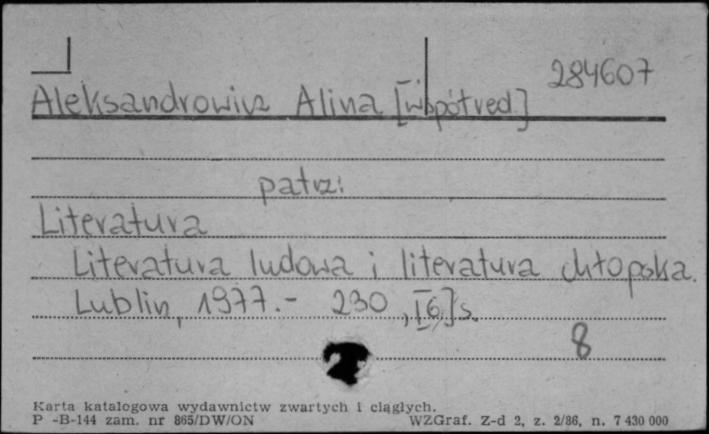 284607
Aleksandrowicz Alina [współred.]
patrz:
Literatura
Literatura ludowa i literatura chłopska.
Lublin, 1977.- 230, [6] s.
8
Karta katalogowa wydawnictw zwartych i ciągłych.
P -B-144 zam. nr 865/DW/ON WZGraf. Z-d 2, z. 2/86, n. 7 430 000